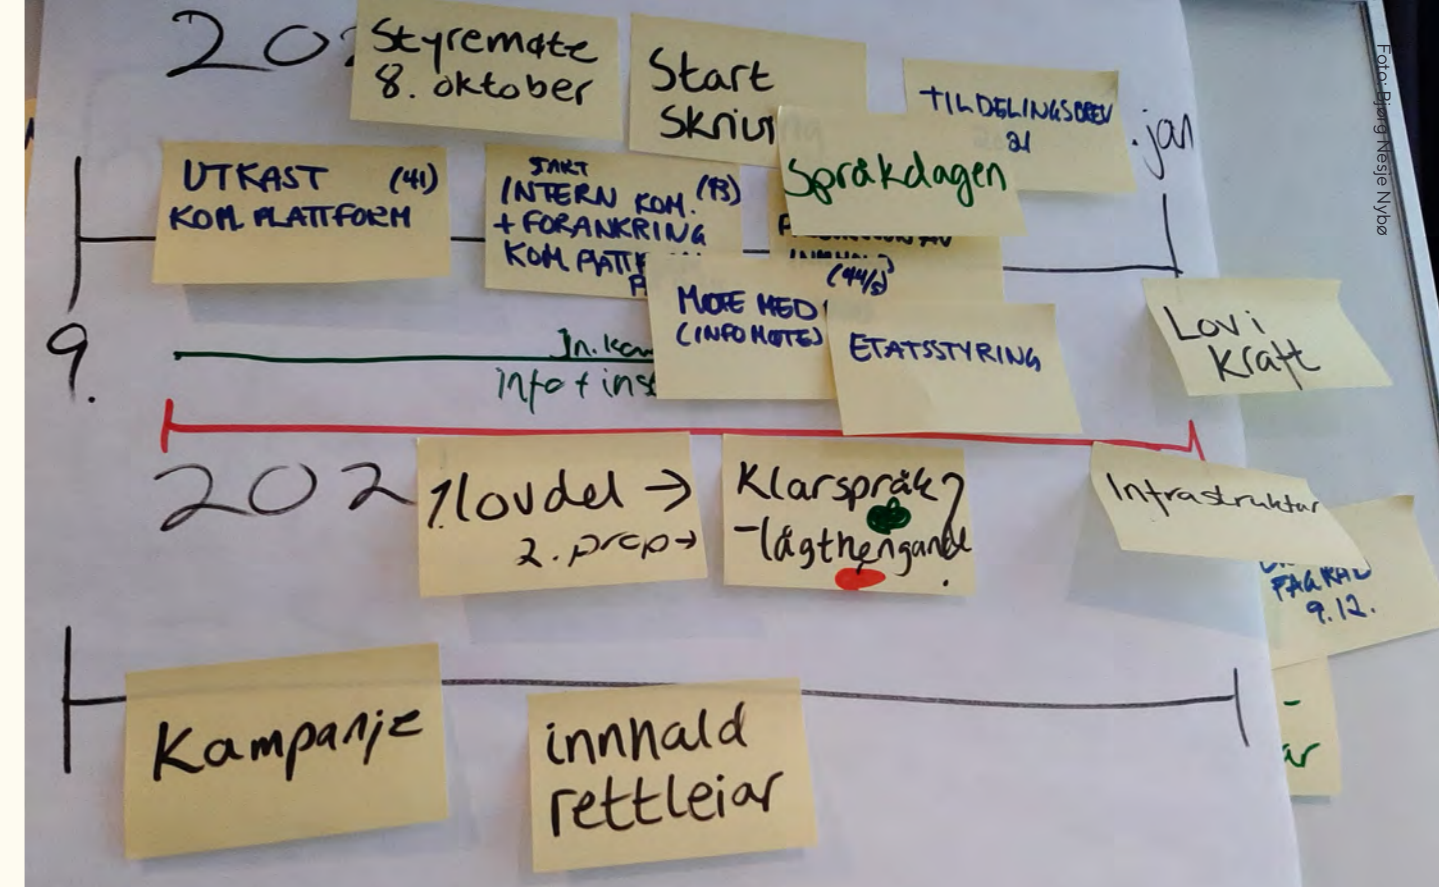 Styremøte
8. oktober
Start
TILDELINGSBREV
21
.jan
Språkdagen
UTKAST (41)
KOM.PLATTFORM
START
INTERN KOM. (43)
+ FORANKRING
KOM.PLATTF
(44/5)
MØTE MED
(INFOMØTE)
ETATSSTYRING
Lov i
kraft
9.
info + inst
1. lovdel →
2. prop →
Klarspråk?
- lågthengande
Infrastruktur
FAGRÅD
9.12.
Kampanje
innhald
rettleiar
Foto: Bjørg Nesje Nybø